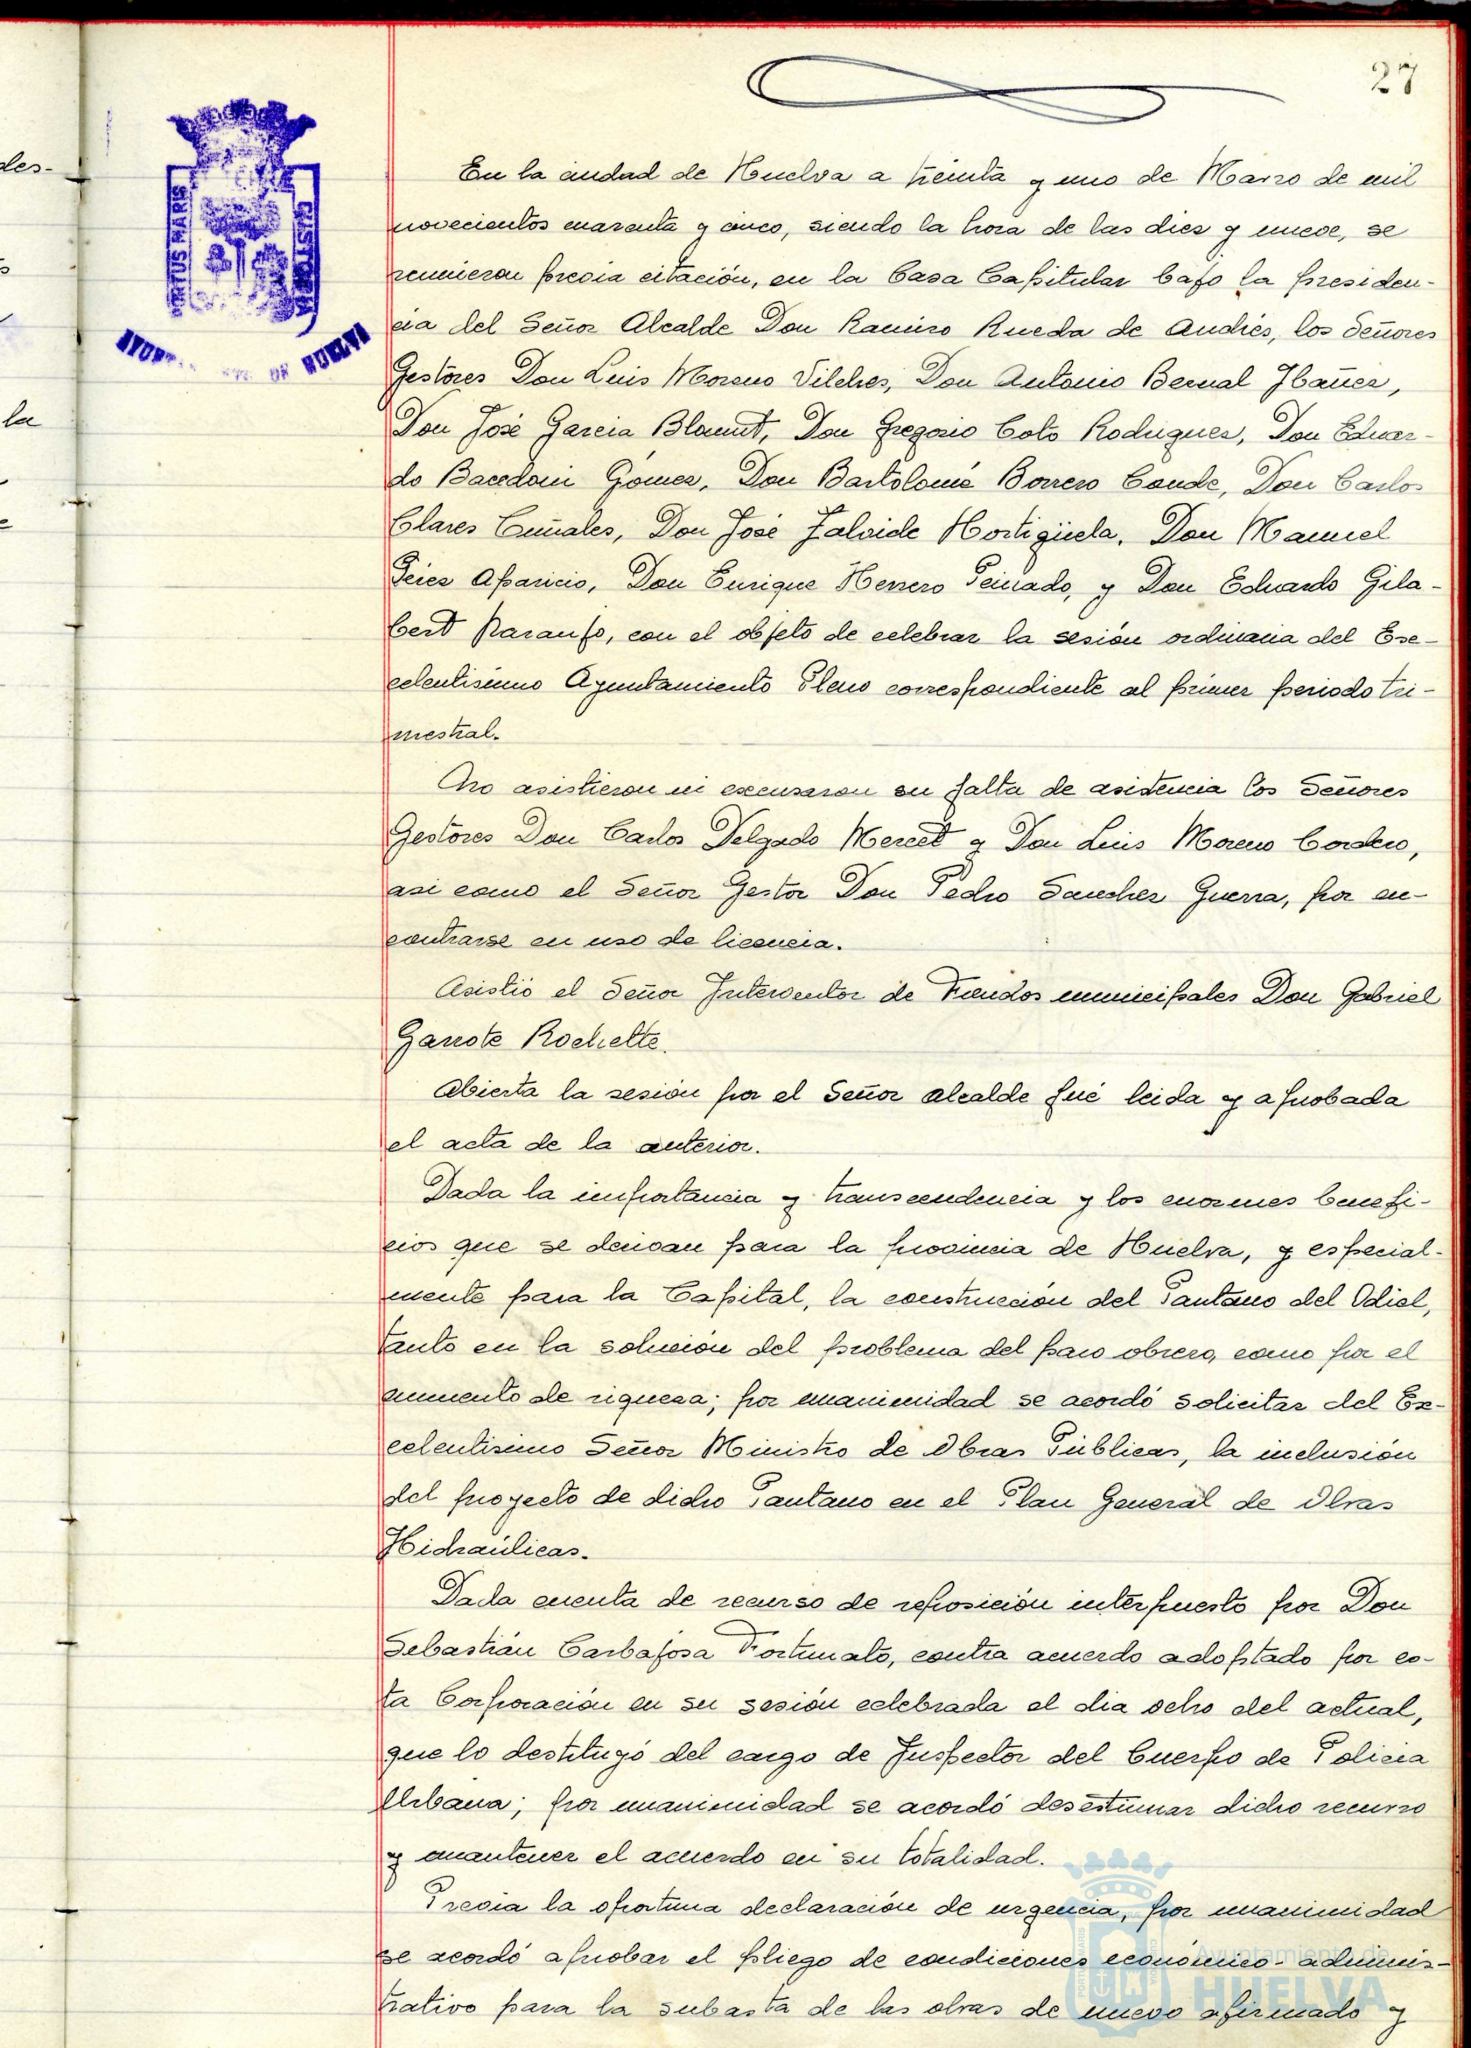 27
PORTUS MARIS
CUSTODIA
DE HUELVA
des-
la
En la ciudad de Huelva a treinta y uno de Marzo de mil
novecientos cuarenta y cinco, siendo la hora de las diez y nueve, se
reunieron previa citación, en la Casa Capitular bajo la presiden-
cia del Señor Alcalde Don Ramiro Rueda de Andrés, los Señores
Gestores Don Luis Moreno Vilches, Don Antonio Bernal Ibañez,
Don José Garcia Don Gregorio Coto Rodriguez, Don Eduar-
do Gómez, Don Bartolomé Borrero Conde, Don Carlos
Clares Don José Hortigüela, Don Manuel
Aparicio, Don Enrique Herrero Peinado, y Don Eduardo Gila-
bert Naranjo, con el objeto de celebrar la sesión ordinaria del Exe-
celentisimo Ayuntamiento Pleno correspondiente al primer periodo tri-
mestral.
No asistieron ni excusaron su falta de asistencia los Señores
Gestores Don Carlos Delgado Mercet y Don Luis Moreno Cordero,
asi como el Señor Gestor Don Pedro Sanchez Guerra, por en-
contrarse en uso de licencia.
Asistió el Señor Interventor de Fondos municipales Don Gabriel
Garrote Rochette.
Abierta la sesión por el Señor Alcalde fué leida y aprobada
el acta de la anterior.
Dada la importancia y transcendencia y los enormes benefi-
cios que se derivan para la provincia de Huelva, y especial-
mente para la Capital, la construcción del Pantano del Odiel,
tanto en la solución del problema del paro obrero, como por el
aumento de riqueza; por unanimidad se acordó solicitar del Ex-
celentisimo Señor Ministro de Obras Públicas, la inclusión
del proyecto de dicho Pantano en el Plan General de Obras
Hidraúlicas.
Dada cuenta de recurso de reposición interpuesto por Don
Sebastián Carbajosa Fortunato, contra acuerdo adoptado por es-
ta Corporación en su sesión celebrada el dia ocho del actual,
que lo destituyó del cargo de Inspector del Cuerpo de Policia
Urbana; por unanimidad se acordó desestimar dicho recurso
y mantener el acuerdo en su totalidad.
Previa la oportuna declaración de urgencia, por unanimidad
se acordó aprobar el pliego de condiciones económico-adminis-
trativo para la subasta de las obras de nuevo afirmado y
Ayuntamiento de
HUELVA